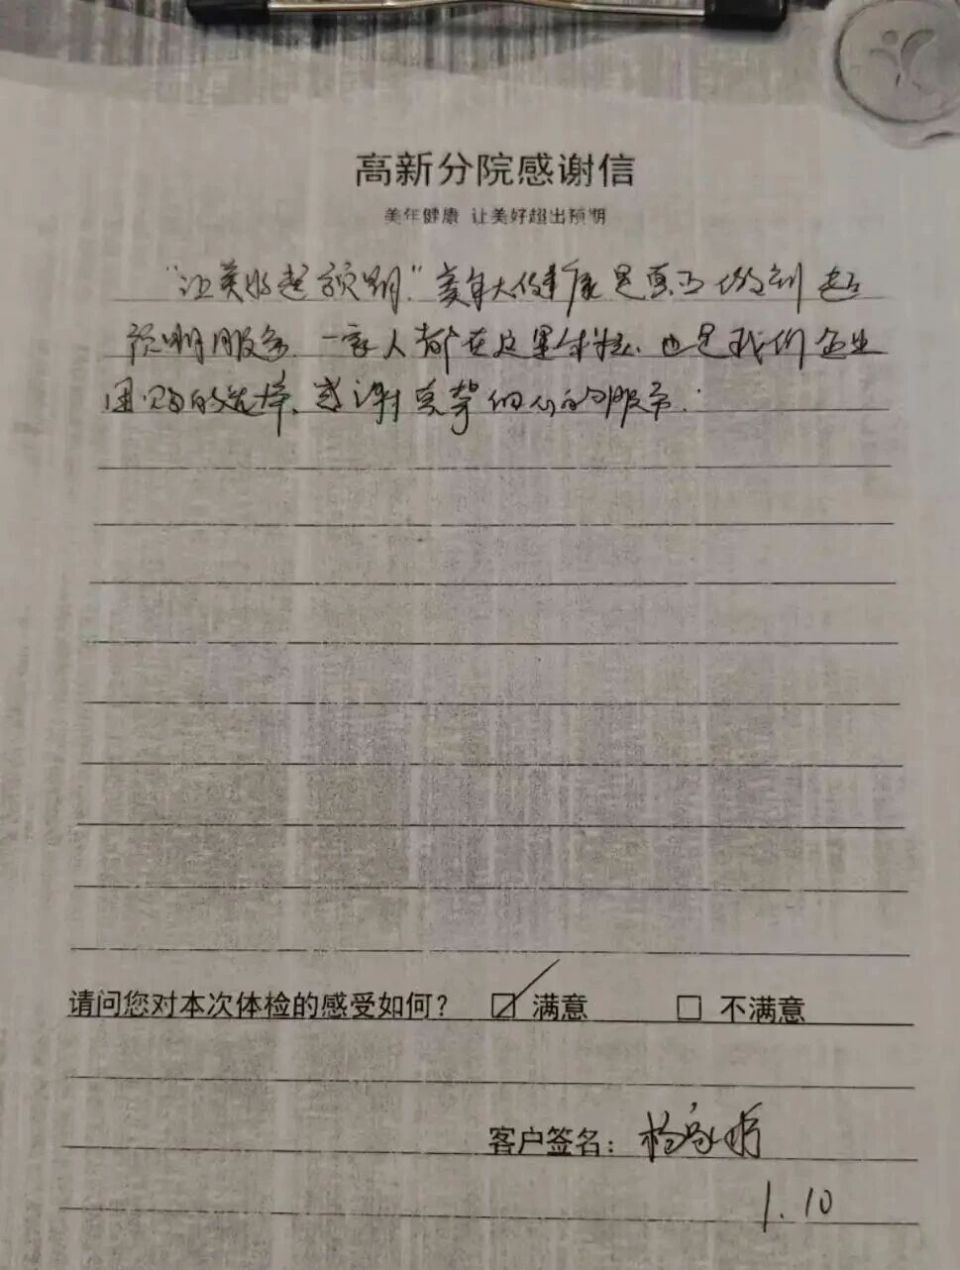 高新分院感谢信
美年健康 让美好超出预期
“让美好超预期”美年大健康是真正做到超
预期服务。一家人都在这里体检、也是我们企业
团购的选择、感谢 们的服务.
请问您对本次体检的感受如何？ ☑ 满意 □ 不满意
客户签名：杨
1.10